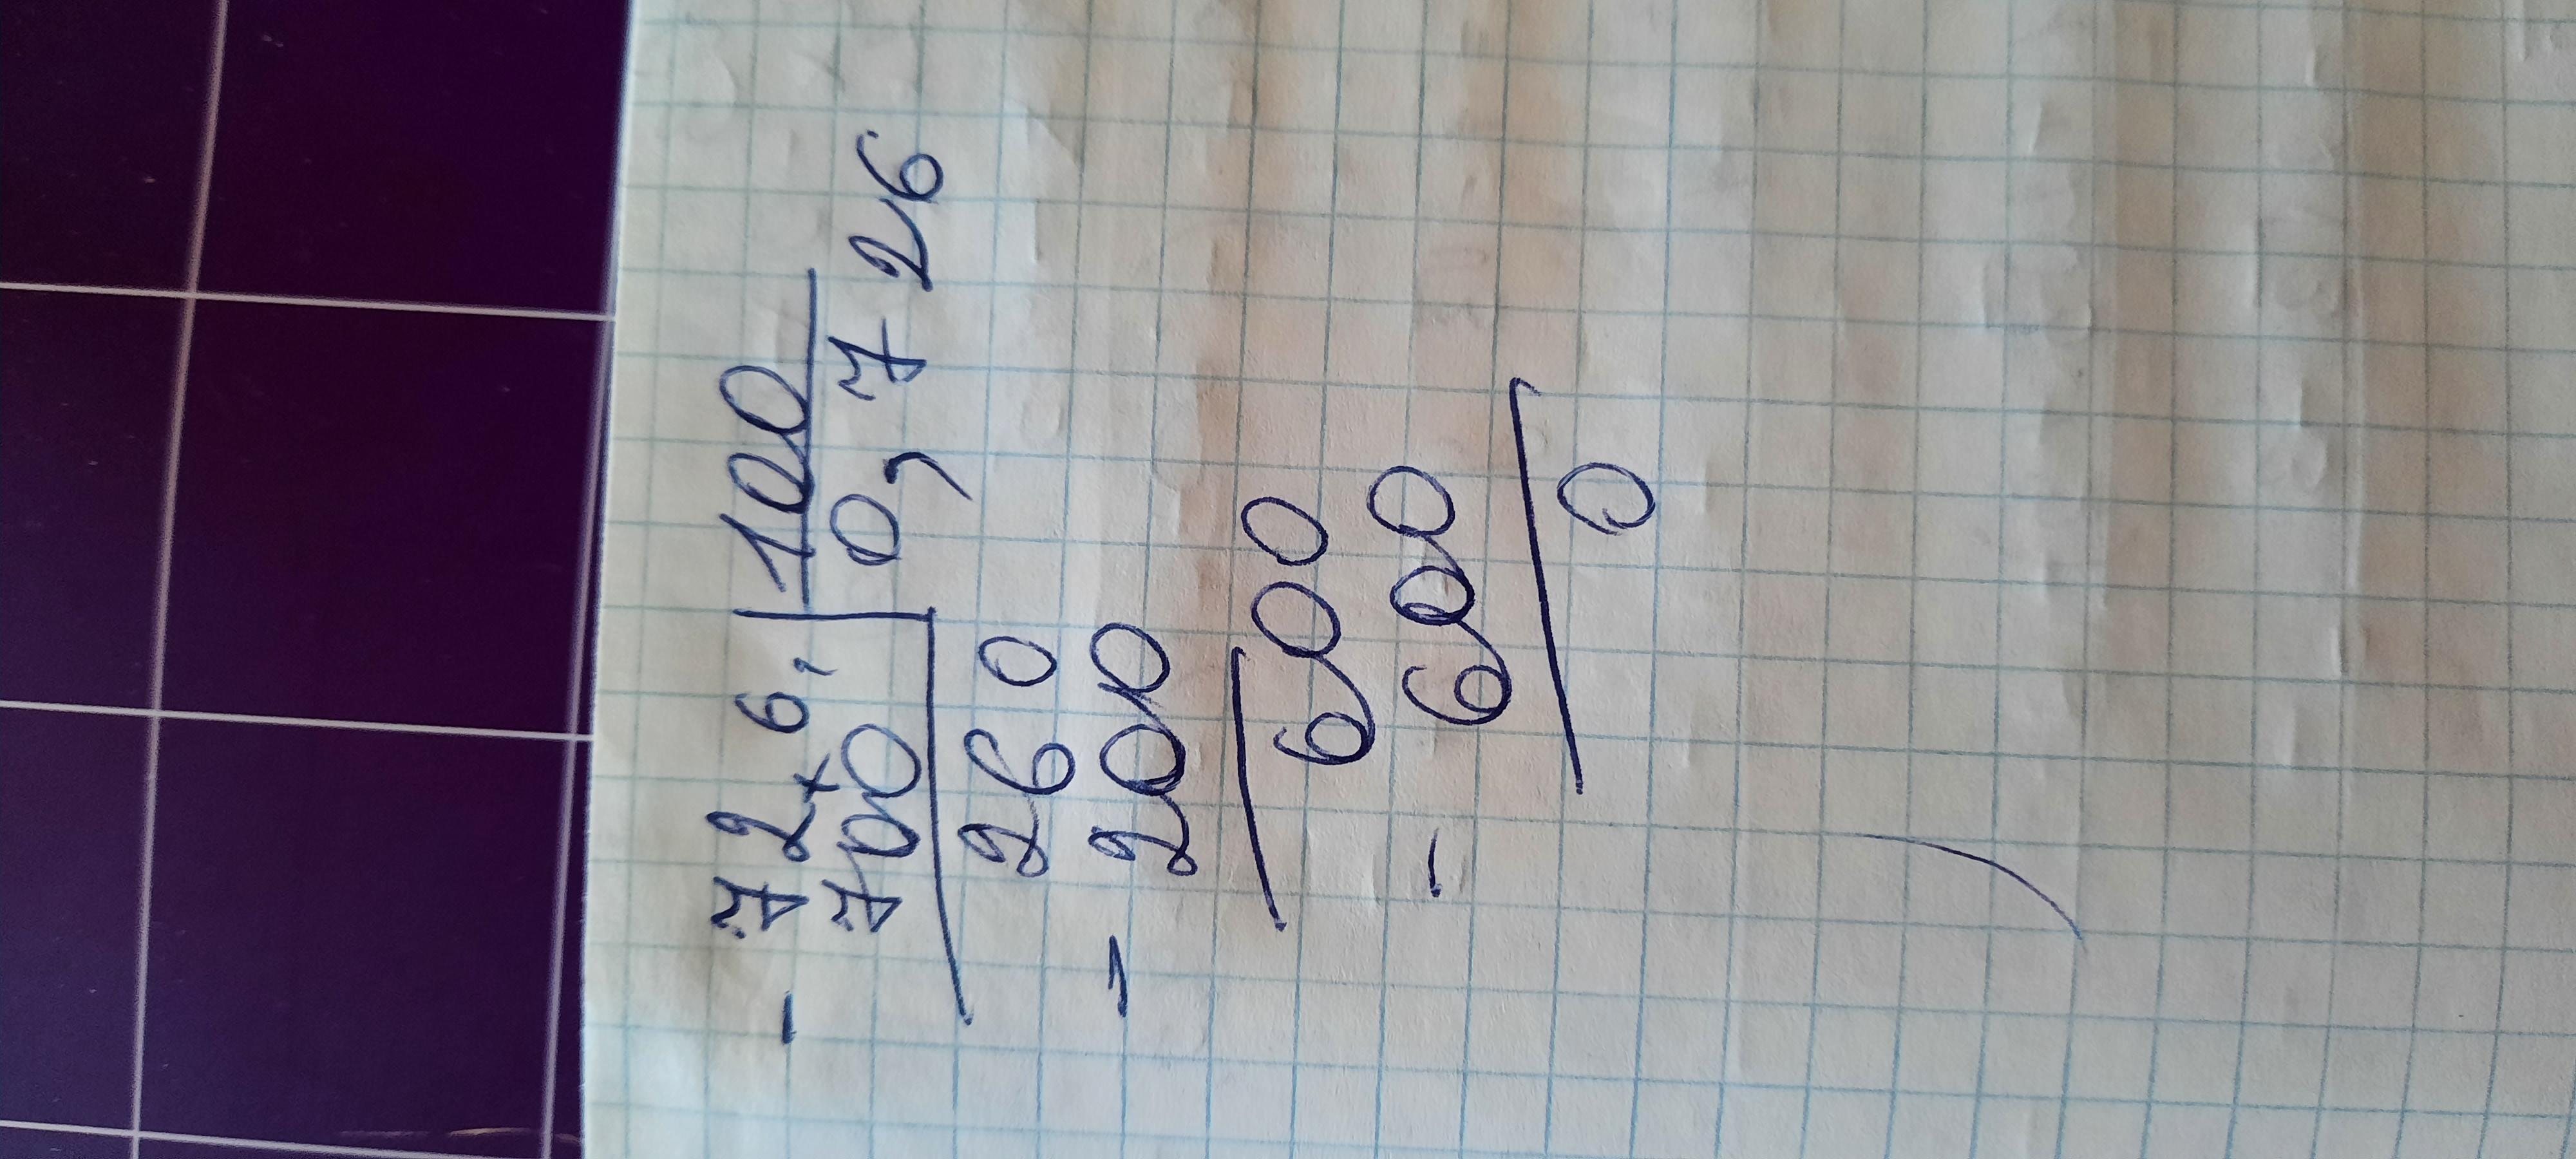 - 72,6 100
700 0,726
260
- 200
600
- 600
0